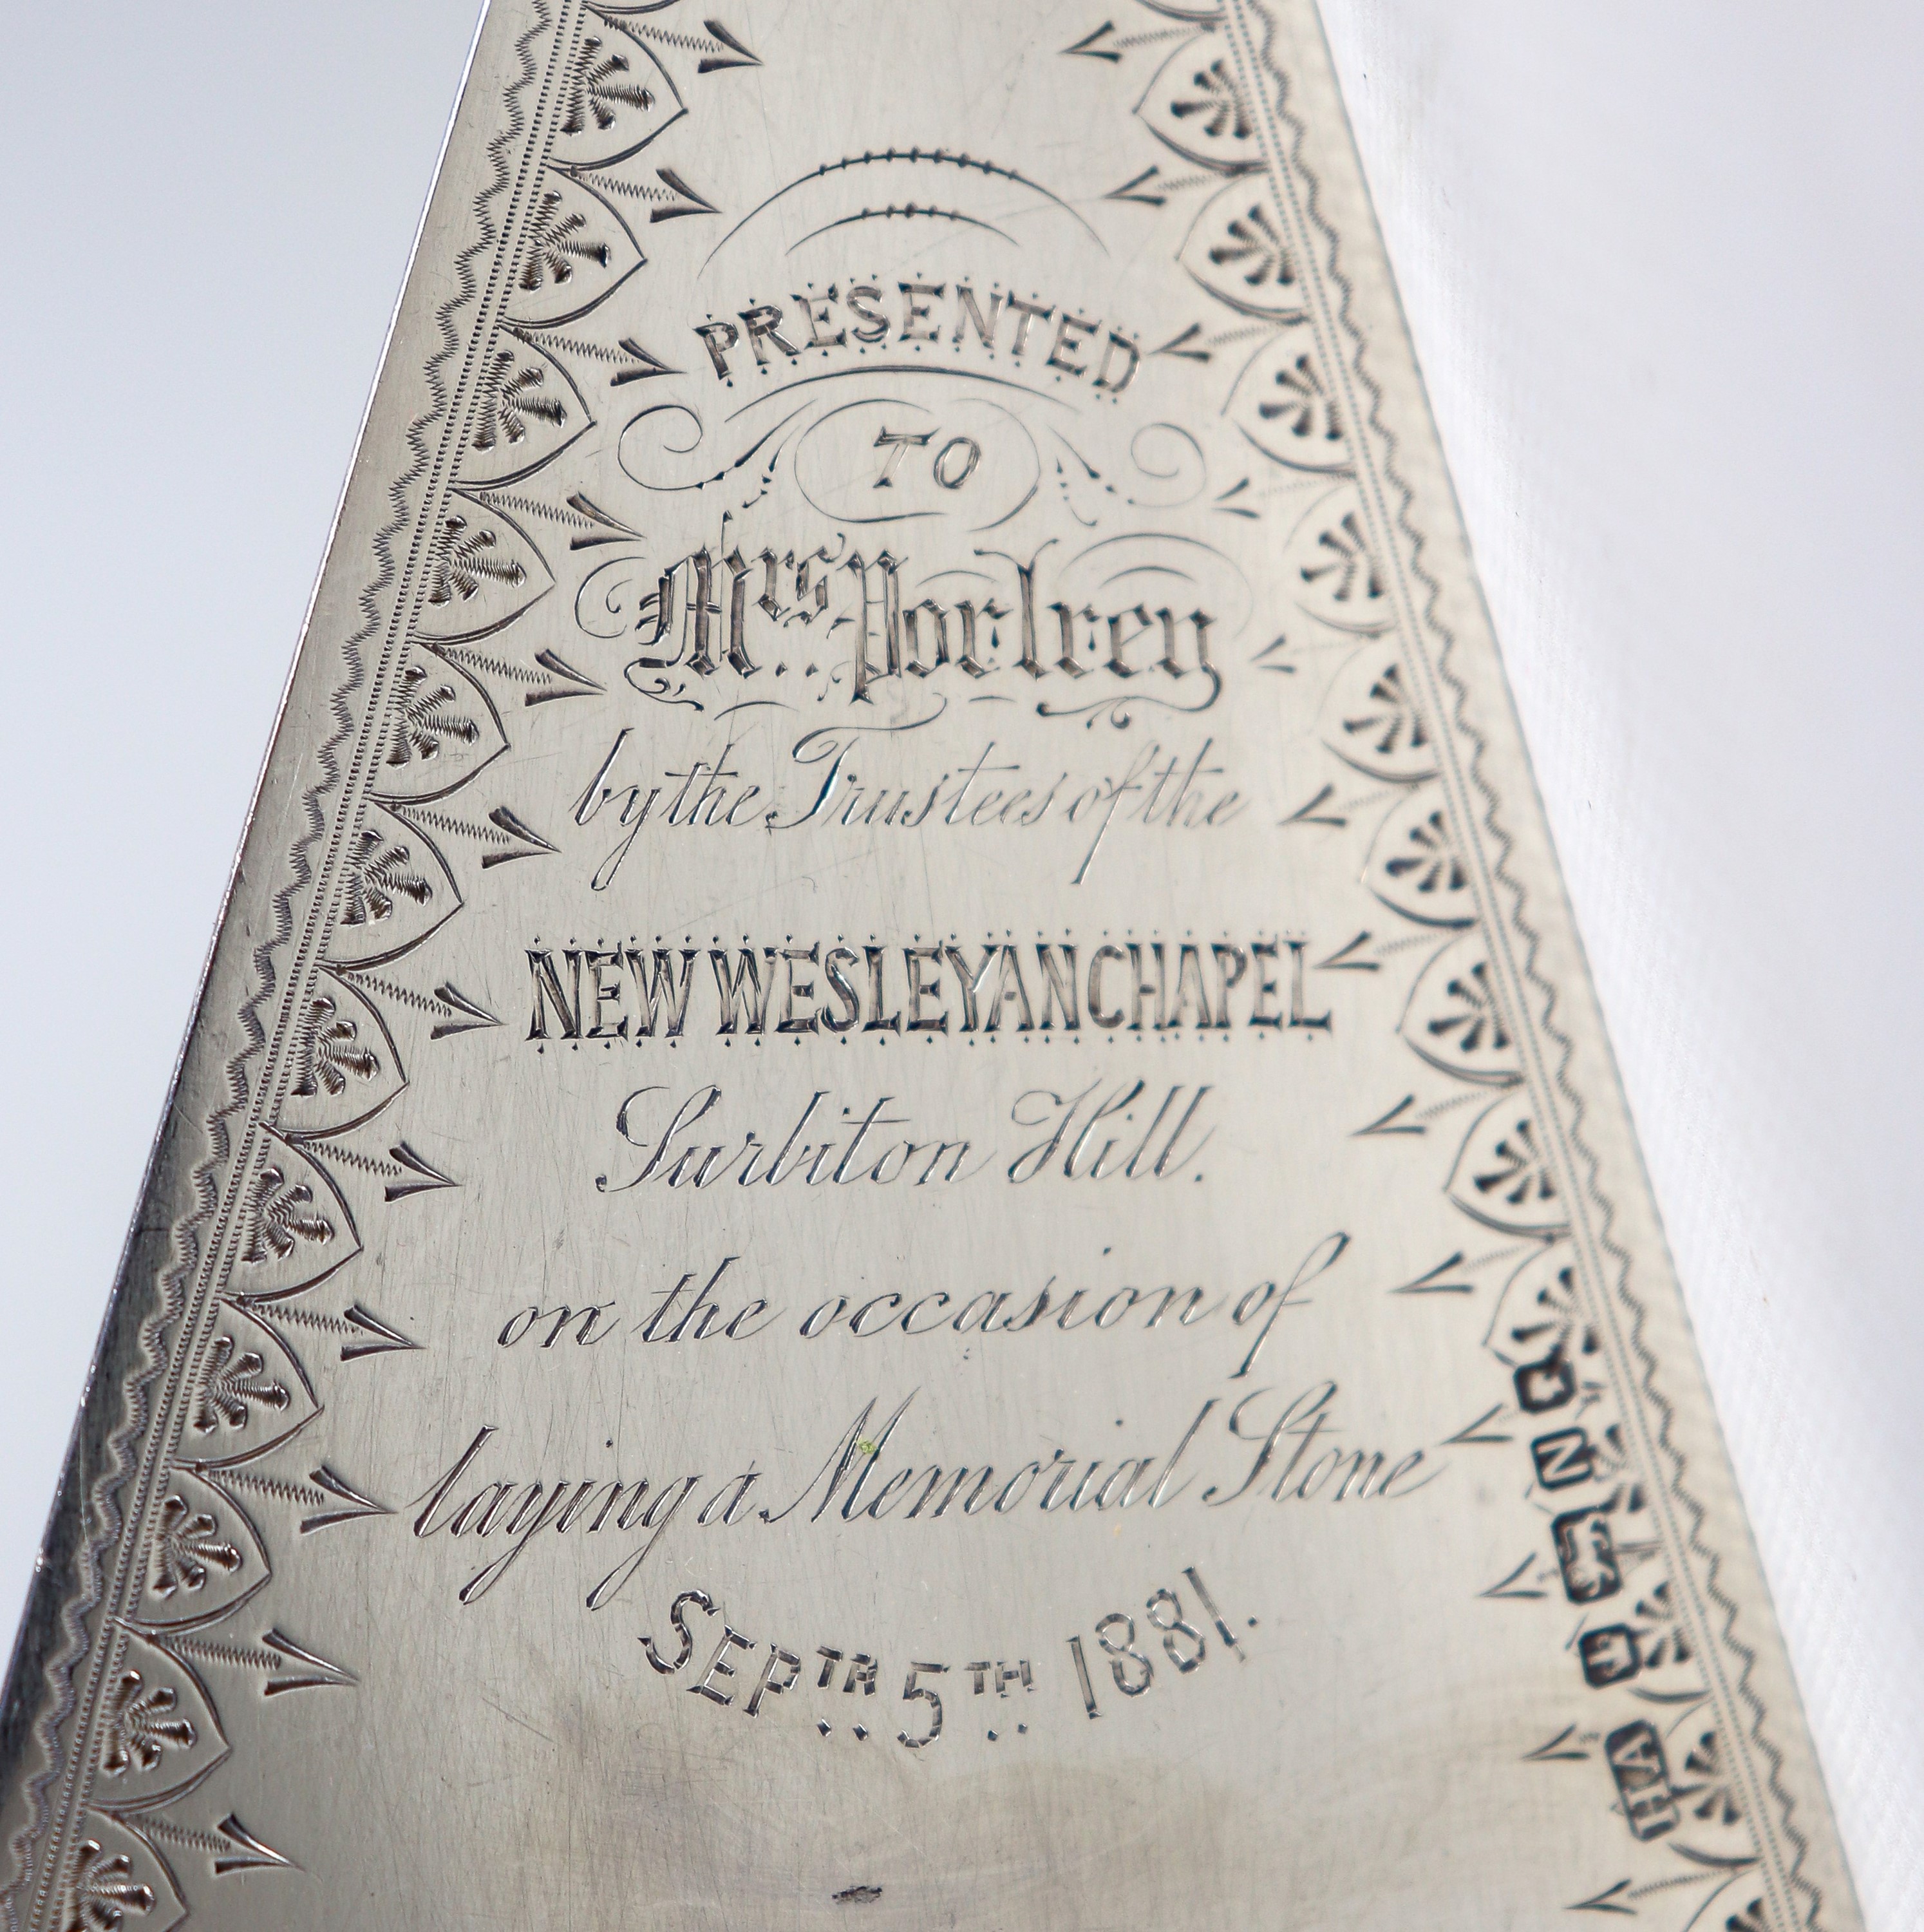 PRESENTED
TO
Mrs. Portrey
by the Trustees of the
NEW WESLEYAN CHAPEL
Surbiton Hill.
on the occasion of
laying a Memorial Stone
SEPTR. 5TH. 1881.
N
HA